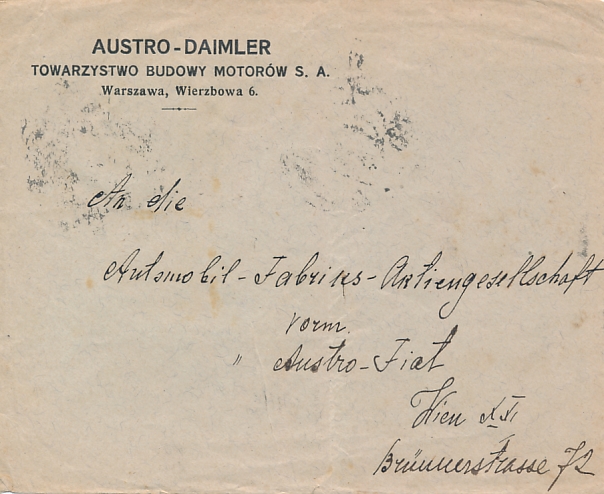 AUSTRO-DAIMLER
TOWARZYSTWO BUDOWY MOTORÓW S. A.
Warszawa, Wierzbowa 6.
An die
Automobil-Fabriks-Aktiengesellschaft
vorm.
" Austro-Fiat
Wien XXI
Brünnerstrasse 72